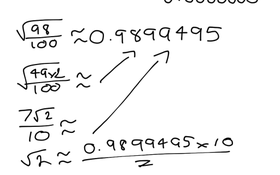 √98/100 ≈ 0.9899495
√49x2/100 ≈
7√2/10 ≈
√2 ≈ 0.9899495 x 10/7